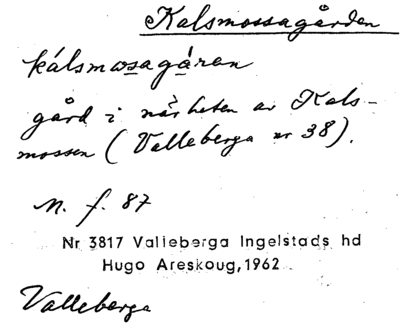 Kalsmossagården
kálsmosagåran
gård i närheten av Kals-
mossen (Valleberga nr 38).
n. f. 87
Nr 3817 Valleberga Ingelstads hd
Hugo Areskoug, 1962
Valleberga